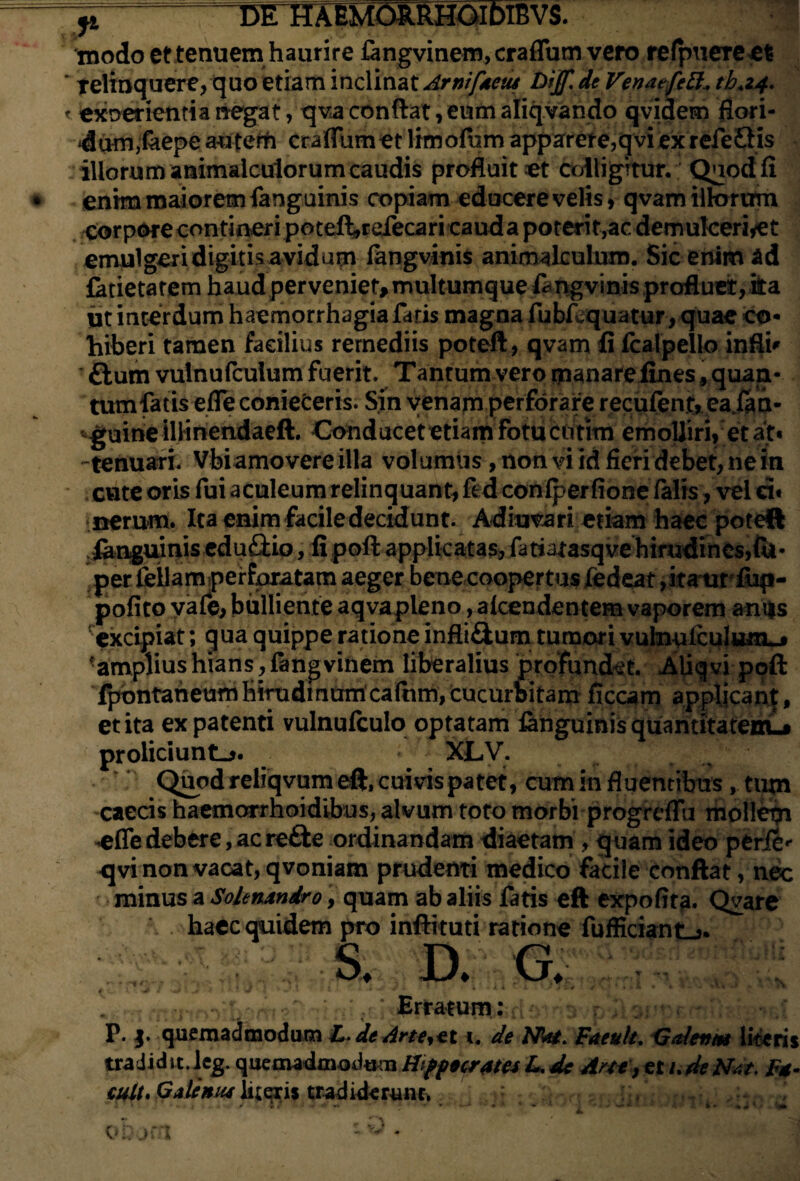 52 DE HAEMORRHOIDIBVS.
modo et tenuem haurire sangvinem, crassum vero respuere et
relinquere, quo etiam inclinat Arnisaeus Diss. de Venaesect. th. 24.
experientia negat, qva constat, eum aliqvando qvidem flori-
dum, saepe autem crassum et limosum apparere, qvi ex resectis
illorum animalculorum caudis profluit et colligitur. Quod si
enim maiorem sanguinis copiam educere velis, qvam illorum
corpore contineri potest, resecari cauda poterit, ac demulceri, et
emulgeri digitis avidum sangvinis animalculum. Sic enim ad
satietatem haud perveniet, multumque sangvinis profluet, ita
ut interdum haemorrhagia satis magna subsequatur, quae co-
hiberi tamen facilius remediis potest, qvam si scalpello infli-
ctum vulnusculum fuerit. Tantum vero manare sines, quan-
tum satis esse conieceris. Sin venam perforare recusent, ea san-
guine illinenda est. Conducet etiam fotu cutim emolliri, et at-
tenuari. Vbi amovere illa volumus, non vi id fieri debet, ne in
cute oris sui aculeum relinquant, sed conspersione salis, vel ci-
nerum. Ita enim facile decidunt. Adiuvari etiam haec potest
sanguinis eductio, si post applicatas, satiatasqve hirudines, su-
per sellam perforatam aeger bene coopertus sedeat, ita ut sup-
posito vase, bulliente aqva pleno, ascendentem vaporem anus
excipiat; qua quippe ratione inflictum tumori vulnusculum
amplius hians, sangvinem liberalius profundet. Aliqvi post
spontaneum hirudinum casum, cucurbitam siccam applicant,
et ita ex patenti vulnusculo optatam sanguinis quantitatem
proliciunt.
XLV.
Quod reliqvum est, cuivis patet, cum in fluentibus, tum
caecis haemorrhoidibus, alvum toto morbi progressu mollem
esse debere, ac recte ordinandam diaetam, quam ideo perse-
qvi non vacat, qvoniam prudenti medico facile constat, nec
minus a Solenandro, quam ab aliis satis est exposita. Qvare
haec quidem pro instituti ratione sufficiant.
S. D. G.
Erratum:
P. 3. quemadmodum L. de Arte, et 1. de Nat. Facult. Galenus literis
tradidit. leg. quemadmodum Hippocrates L. de Arte, et 1. de Nat. Fa-
cult. Galenus literis tradiderunt.